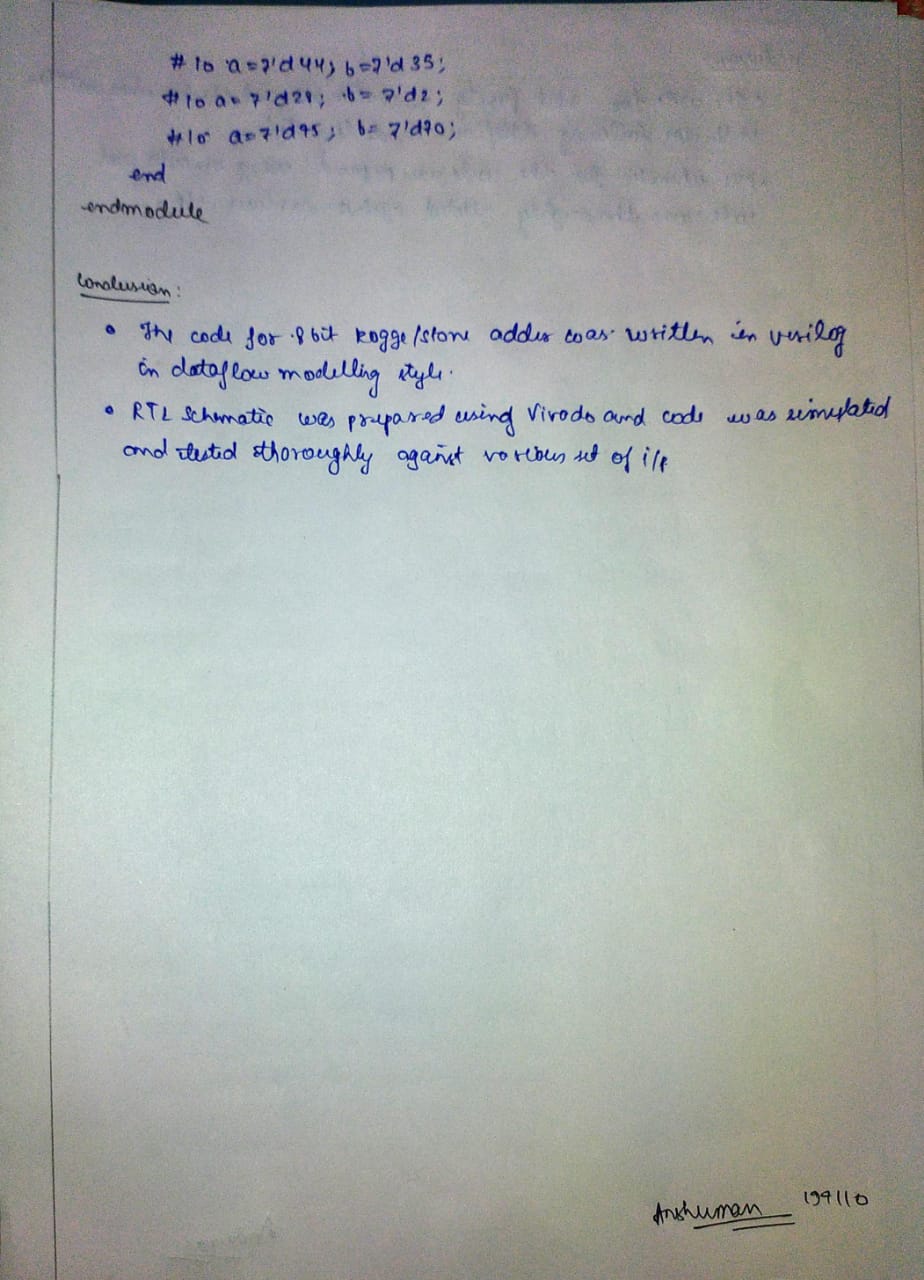 #10 a=7'd44; b=7'd35;
#10 a= 7'd28; b= 7'd2;
#10 a=7'd95; b= 7'd70;
end
endmodule
Conclusion:
• The code for 8 bit kogge/stone adder was written in verilog
in dataflow modelling style.
• RTL Schematic was prepared using Vivado and code was simulated
and tested thoroughly against various set of i/p
Anshuman 199110